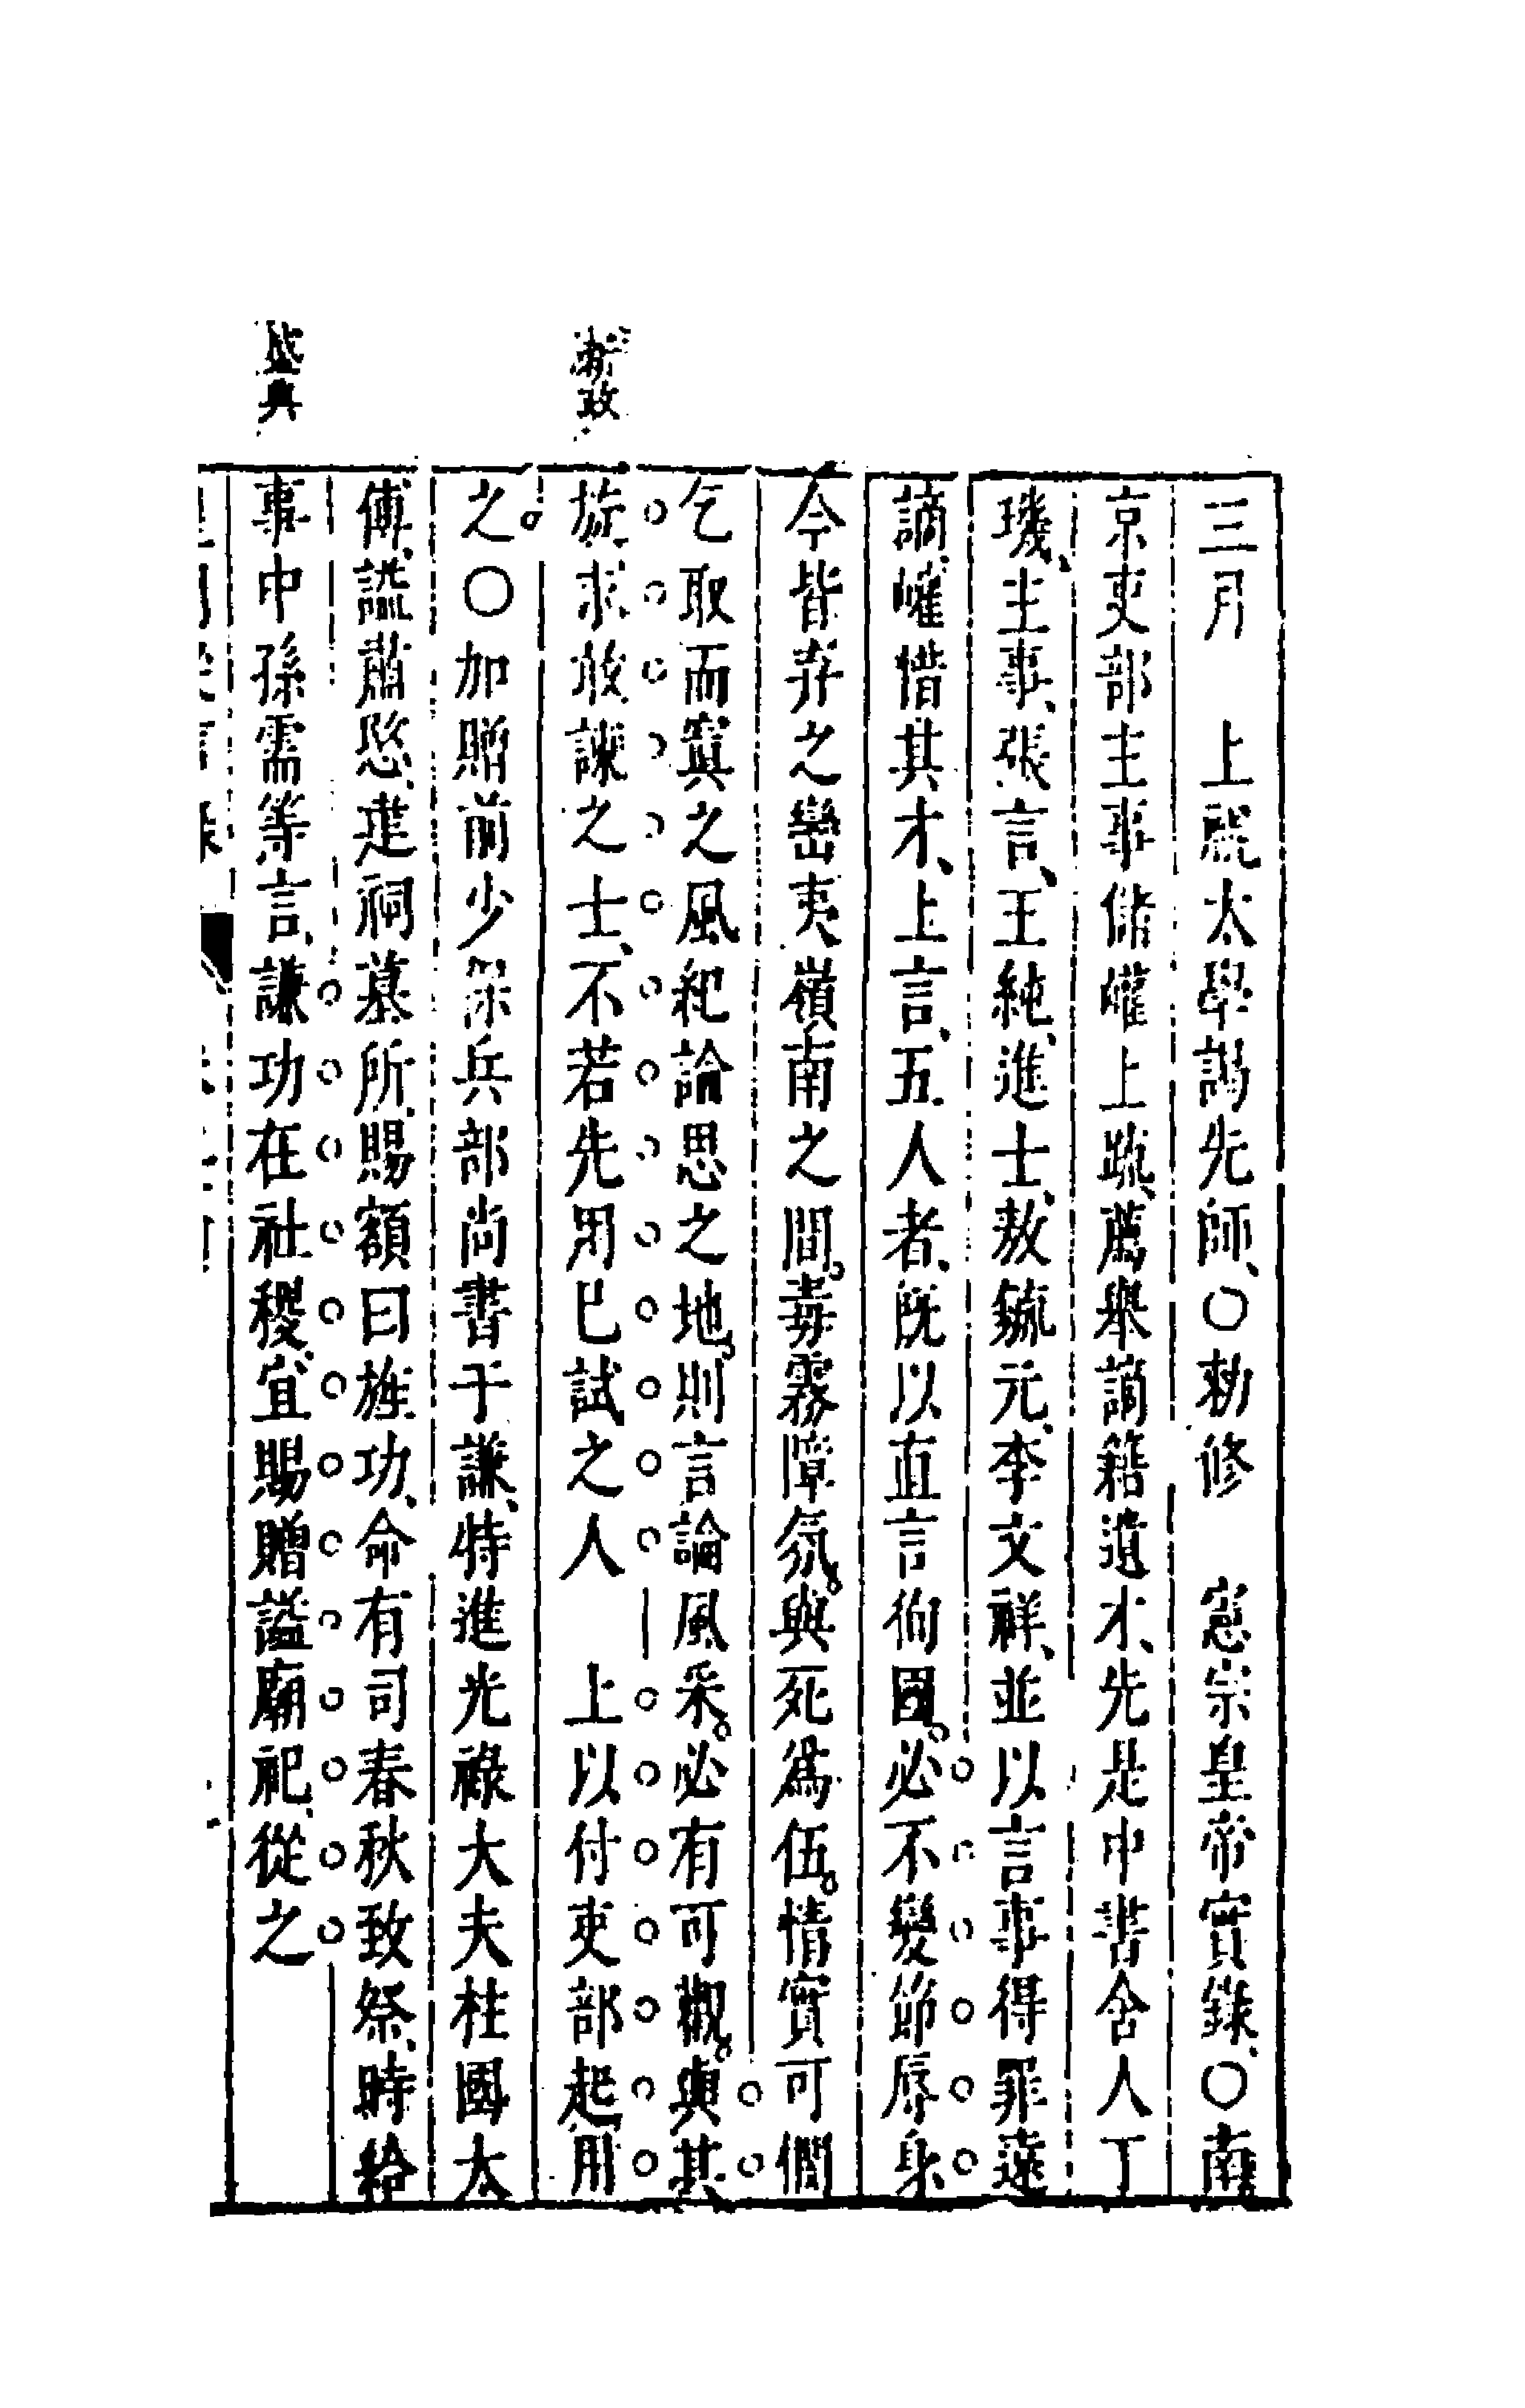 三月　上視太學謁先師○勅修　憲宗皇帝實錄○南
京吏部主事儲巏上疏薦舉謫籍遺才先是中書舍人丁
璣主事張言王純進士敖毓元李文祥並以言事得罪遠
謫巏惜其才上言五人者旣以直言徇國必不變節辱身
今皆弃之蠻夷嶺南之間毒霧障氛與死爲伍情實可憫
乞取而寘之風紀論思之地則言論風采必有可觀與其
旋求敢諫之士不若先用已試之人　上以付吏部起用
之○加贈前少保兵部尚書于謙特進光祿大夫柱國太
傅謚肅愍建祠墓所賜額曰旌功命有司春秋致祭時給
事中孫需等言謙功在社稷宜賜贈謚廟祀從之
新政
盛典